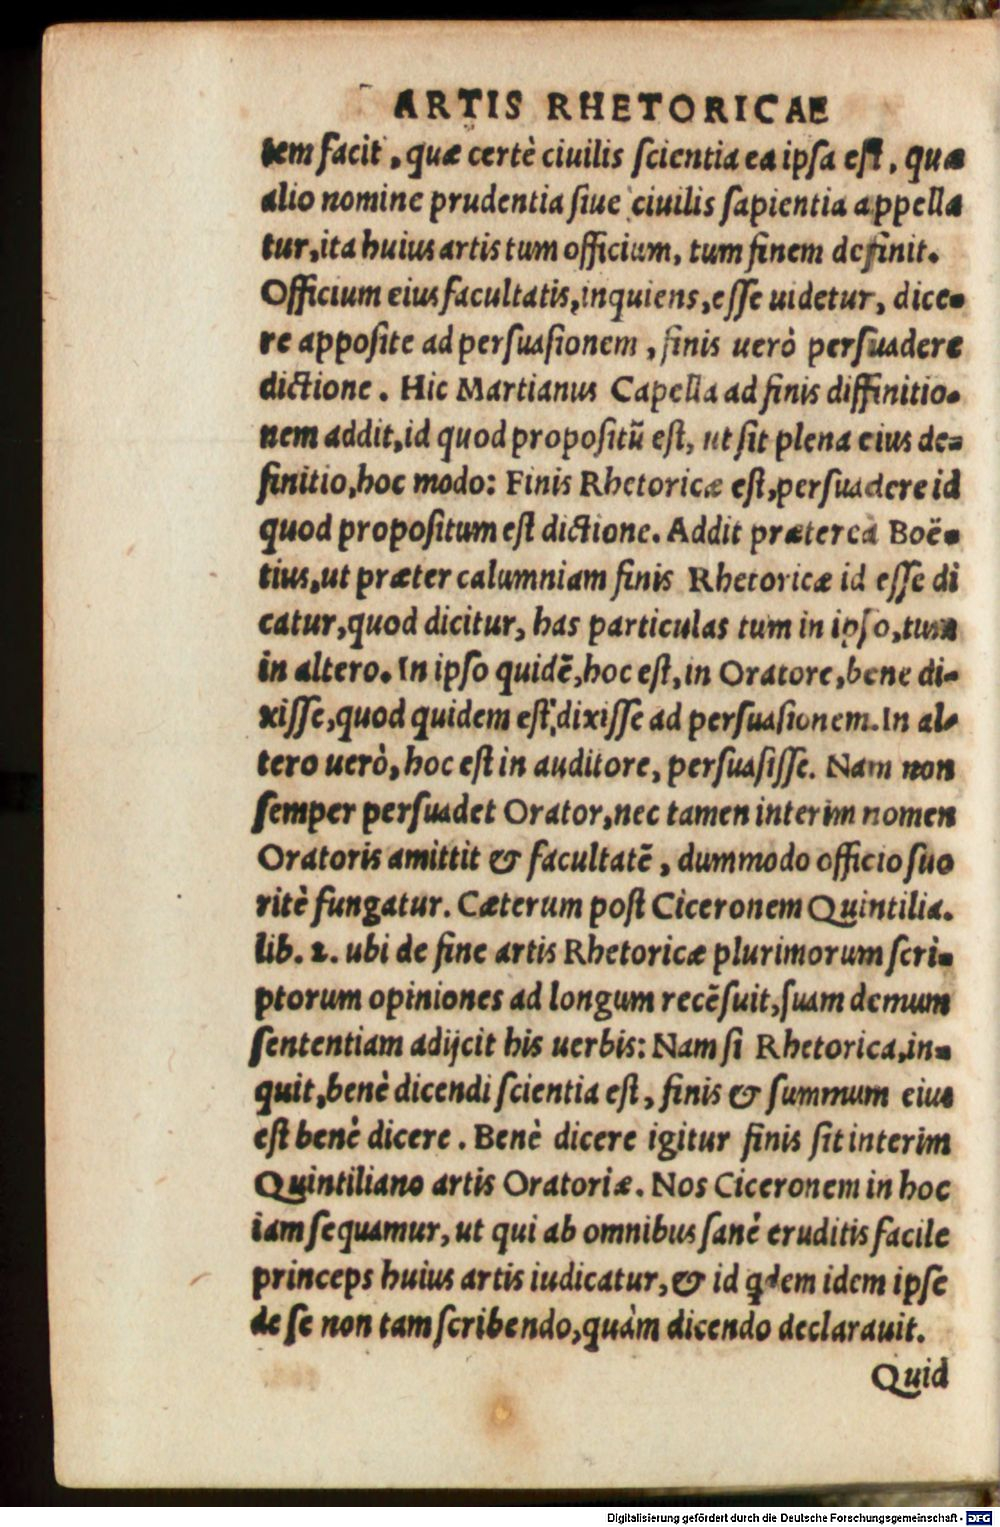 ARTIS RHETORICAE
tem facit, quæ certè ciuilis ſcientia ea ipſa eſt, quæ
alio nomine prudentia ſiue ciuilis ſapientia appella
tur, ita huius artis tum officium, tum finem definit.
Officium eius facultatis, inquiens, eſſe uidetur, dice-
re appoſite ad perſuaſionem, finis uerò perſuadere
dictione. Hic Martianus Capella ad finis diffinitio-
nem addit, id quod propoſitū eſt, ut ſit plena eius de-
finitio, hoc modo: Finis Rhetoricæ eſt, perſuadere id
quod propoſitum eſt dictione. Addit præterea Boë-
tius, ut præter calumniam finis Rhetoricæ id eſſe di
catur, quod dicitur, has particulas tum in ipſo, tum
in altero. In ipſo quidē, hoc eſt, in Oratore, bene di-
xiſſe, quod quidem eſt, dixiſſe ad perſuaſionem. In al-
tero uerò, hoc eſt in auditore, perſuaſiſſe. Nam non
ſemper perſuadet Orator, nec tamen interim nomen
Oratoris amittit & facultatē, dummodo officio ſuo
ritè fungatur. Cæterum poſt Ciceronem Quintilia.
lib. 2. ubi de fine artis Rhetoricæ plurimorum ſcri-
ptorum opiniones ad longum recēſuit, ſuam demum
ſententiam adijcit his uerbis: Nam ſi Rhetorica, in-
quit, benè dicendi ſcientia eſt, finis & ſummum eius
eſt benè dicere. Benè dicere igitur finis ſit interim
Quintiliano artis Oratoriæ. Nos Ciceronem in hoc
iam ſequamur, ut qui ab omnibus ſanè eruditis facile
princeps huius artis iudicatur, & id qdem idem ipſe
de ſe non tam ſcribendo, quàm dicendo declarauit.
Quid
Digitalisierung gefördert durch die Deutsche Forschungsgemeinschaft - DFG